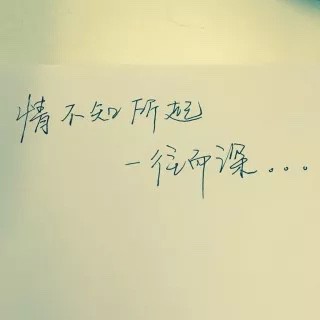 情不知所起
一往而深。。。